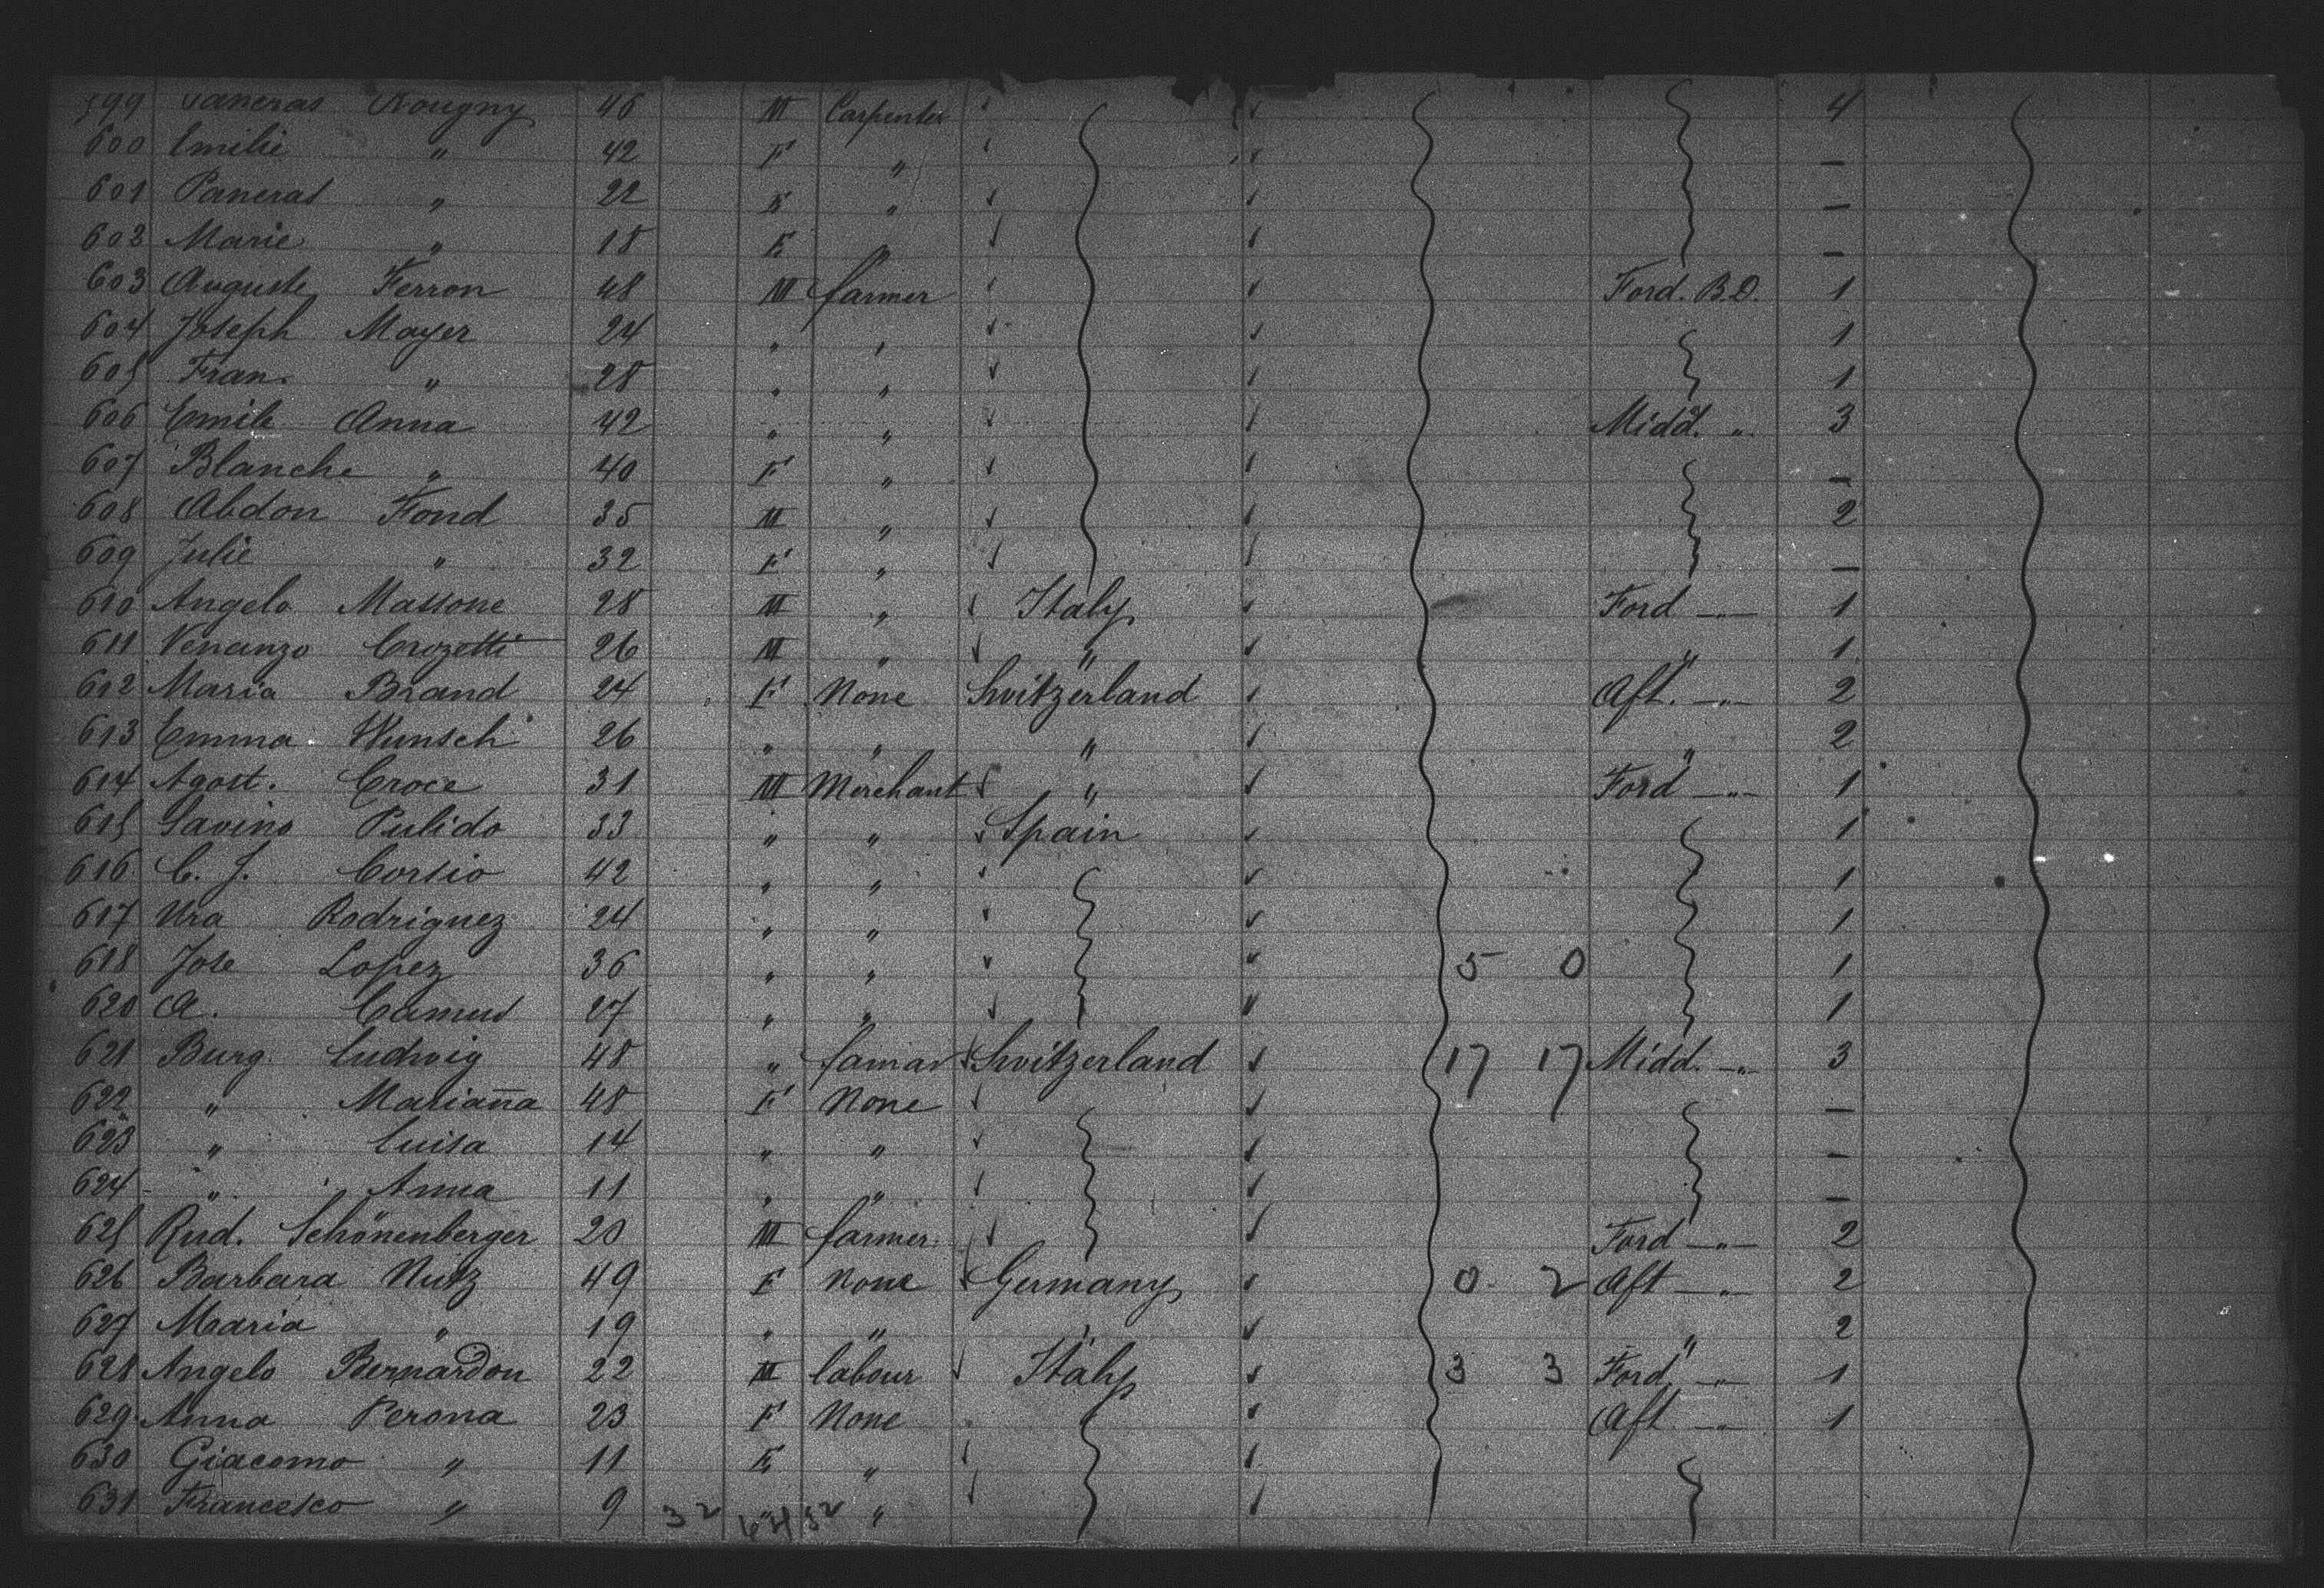 599 Paneras Rougny 46 M Carpenter 4
600 Emilie " 42 F " —
601 Paneras " 22 " —
602 Marie " 18 F " —
603 Auguste Ferron 48 M farmer Ford. B.D. 1
604 Joseph Mayer 24 " " 1
605 Fran. " 28 " " 1
606 Emile Anna 42 " " Midd. " 3
607 Blanche " 40 F " —
608 Abdon Fond 35 M " 2
609 Julie " 32 F " —
610 Angelo Massone 28 M " Italy Ford —"— 1
611 Venanzo Crozetti 26 M " " " 1
612 Maria Brand 24 F None Switzerland Aft. —"— 2
613 Emma Wunsch 26 " " " " 2
614 Agost. Croce 31 M Merchant " Ford —"— 1
615 Savino Pulido 33 " " Spain 1
616 C. J. Corsio 42 " " 1
617 Ura Rodriguez 24 " " 1
618 Jose Lopez 36 " " 5 0 1
620 A. Camus 27 " " 1
621 Burg Ludwig 48 " famar Switzerland 17 17 Midd. —"— 3
622 " Mariana 48 F None —
623 " Luisa 14 " " —
624 " Anna 11 " " —
625 Rud. Schönenberger 20 M farmer Ford —"— 2
626 Barbara Nutz 49 F None Germany 0 2 Aft —"— 2
627 Maria " 19 " " " " 2
628 Angelo Bernardon 22 M labour Italy 3 3 Ford —"— 1
629 Anna Perona 23 F None Aft —"— 1
630 Giacomo " 11 "
631 Francesco " 9 32 "